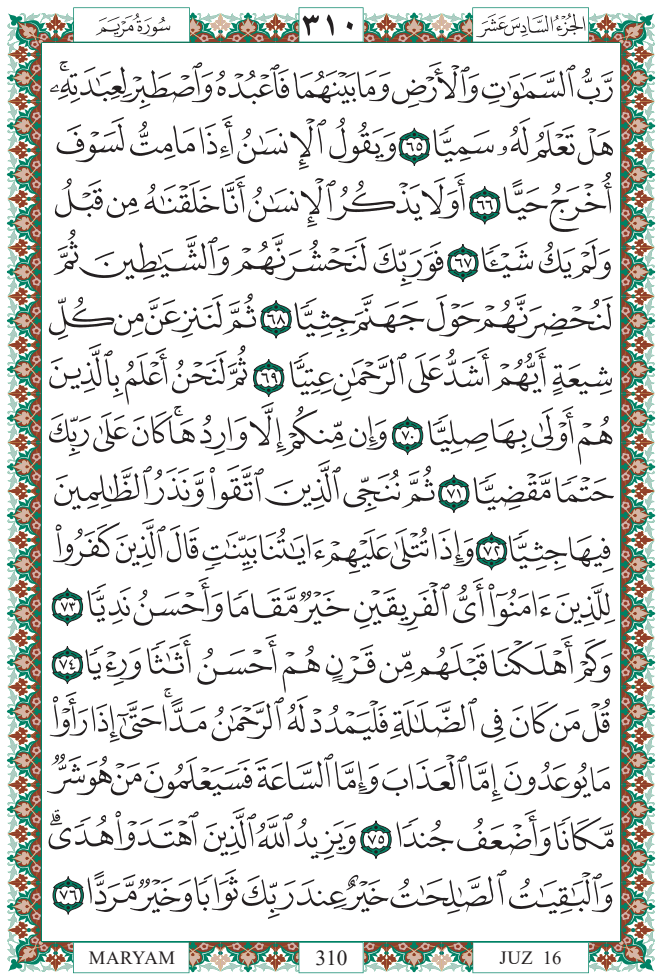 الجُزْءُ السَّادِسَ عَشَرَ ٣١٠ سُورَةُ مَرْيَمَ
رَّبُّ ٱلسَّمَٰوَٰتِ وَٱلْأَرْضِ وَمَا بَيْنَهُمَا فَٱعْبُدْهُ وَٱصْطَبِرْ لِعِبَٰدَتِهِۦۚ
هَلْ تَعْلَمُ لَهُۥ سَمِيًّا ٦٥ وَيَقُولُ ٱلْإِنسَٰنُ أَءِذَا مَا مِتُّ لَسَوْفَ
أُخْرَجُ حَيًّا ٦٦ أَوَلَا يَذْكُرُ ٱلْإِنسَٰنُ أَنَّا خَلَقْنَٰهُ مِن قَبْلُ
وَلَمْ يَكُ شَيْـًٔا ٦٧ فَوَرَبِّكَ لَنَحْشُرَنَّهُمْ وَٱلشَّيَٰطِينَ ثُمَّ
لَنُحْضِرَنَّهُمْ حَوْلَ جَهَنَّمَ جِثِيًّا ٦٨ ثُمَّ لَنَنزِعَنَّ مِن كُلِّ
شِيعَةٍ أَيُّهُمْ أَشَدُّ عَلَى ٱلرَّحْمَٰنِ عِتِيًّا ٦٩ ثُمَّ لَنَحْنُ أَعْلَمُ بِٱلَّذِينَ
هُمْ أَوْلَىٰ بِهَا صِلِيًّا ٧٠ وَإِن مِّنكُمْ إِلَّا وَارِدُهَاۚ كَانَ عَلَىٰ رَبِّكَ
حَتْمًا مَّقْضِيًّا ٧١ ثُمَّ نُنَجِّى ٱلَّذِينَ ٱتَّقَوا۟ وَّنَذَرُ ٱلظَّٰلِمِينَ
فِيهَا جِثِيًّا ٧٢ وَإِذَا تُتْلَىٰ عَلَيْهِمْ ءَايَٰتُنَا بَيِّنَٰتٍ قَالَ ٱلَّذِينَ كَفَرُوا۟
لِلَّذِينَ ءَامَنُوٓا۟ أَىُّ ٱلْفَرِيقَيْنِ خَيْرٌ مَّقَامًا وَأَحْسَنُ نَدِيًّا ٧٣
وَكَمْ أَهْلَكْنَا قَبْلَهُم مِّن قَرْنٍ هُمْ أَحْسَنُ أَثَٰثًا وَرِءْيًا ٧٤
قُلْ مَن كَانَ فِى ٱلضَّلَٰلَةِ فَلْيَمْدُدْ لَهُ ٱلرَّحْمَٰنُ مَدًّاۚ حَتَّىٰٓ إِذَا رَأَوْا۟
مَا يُوعَدُونَ إِمَّا ٱلْعَذَابَ وَإِمَّا ٱلسَّاعَةَ فَسَيَعْلَمُونَ مَنْ هُوَ شَرٌّ
مَّكَانًا وَأَضْعَفُ جُندًا ٧٥ وَيَزِيدُ ٱللَّهُ ٱلَّذِينَ ٱهْتَدَوْا۟ هُدًىۗ
وَٱلْبَٰقِيَٰتُ ٱلصَّٰلِحَٰتُ خَيْرٌ عِندَ رَبِّكَ ثَوَابًا وَخَيْرٌ مَّرَدًّا ٧٦
MARYAM 310 JUZ 16